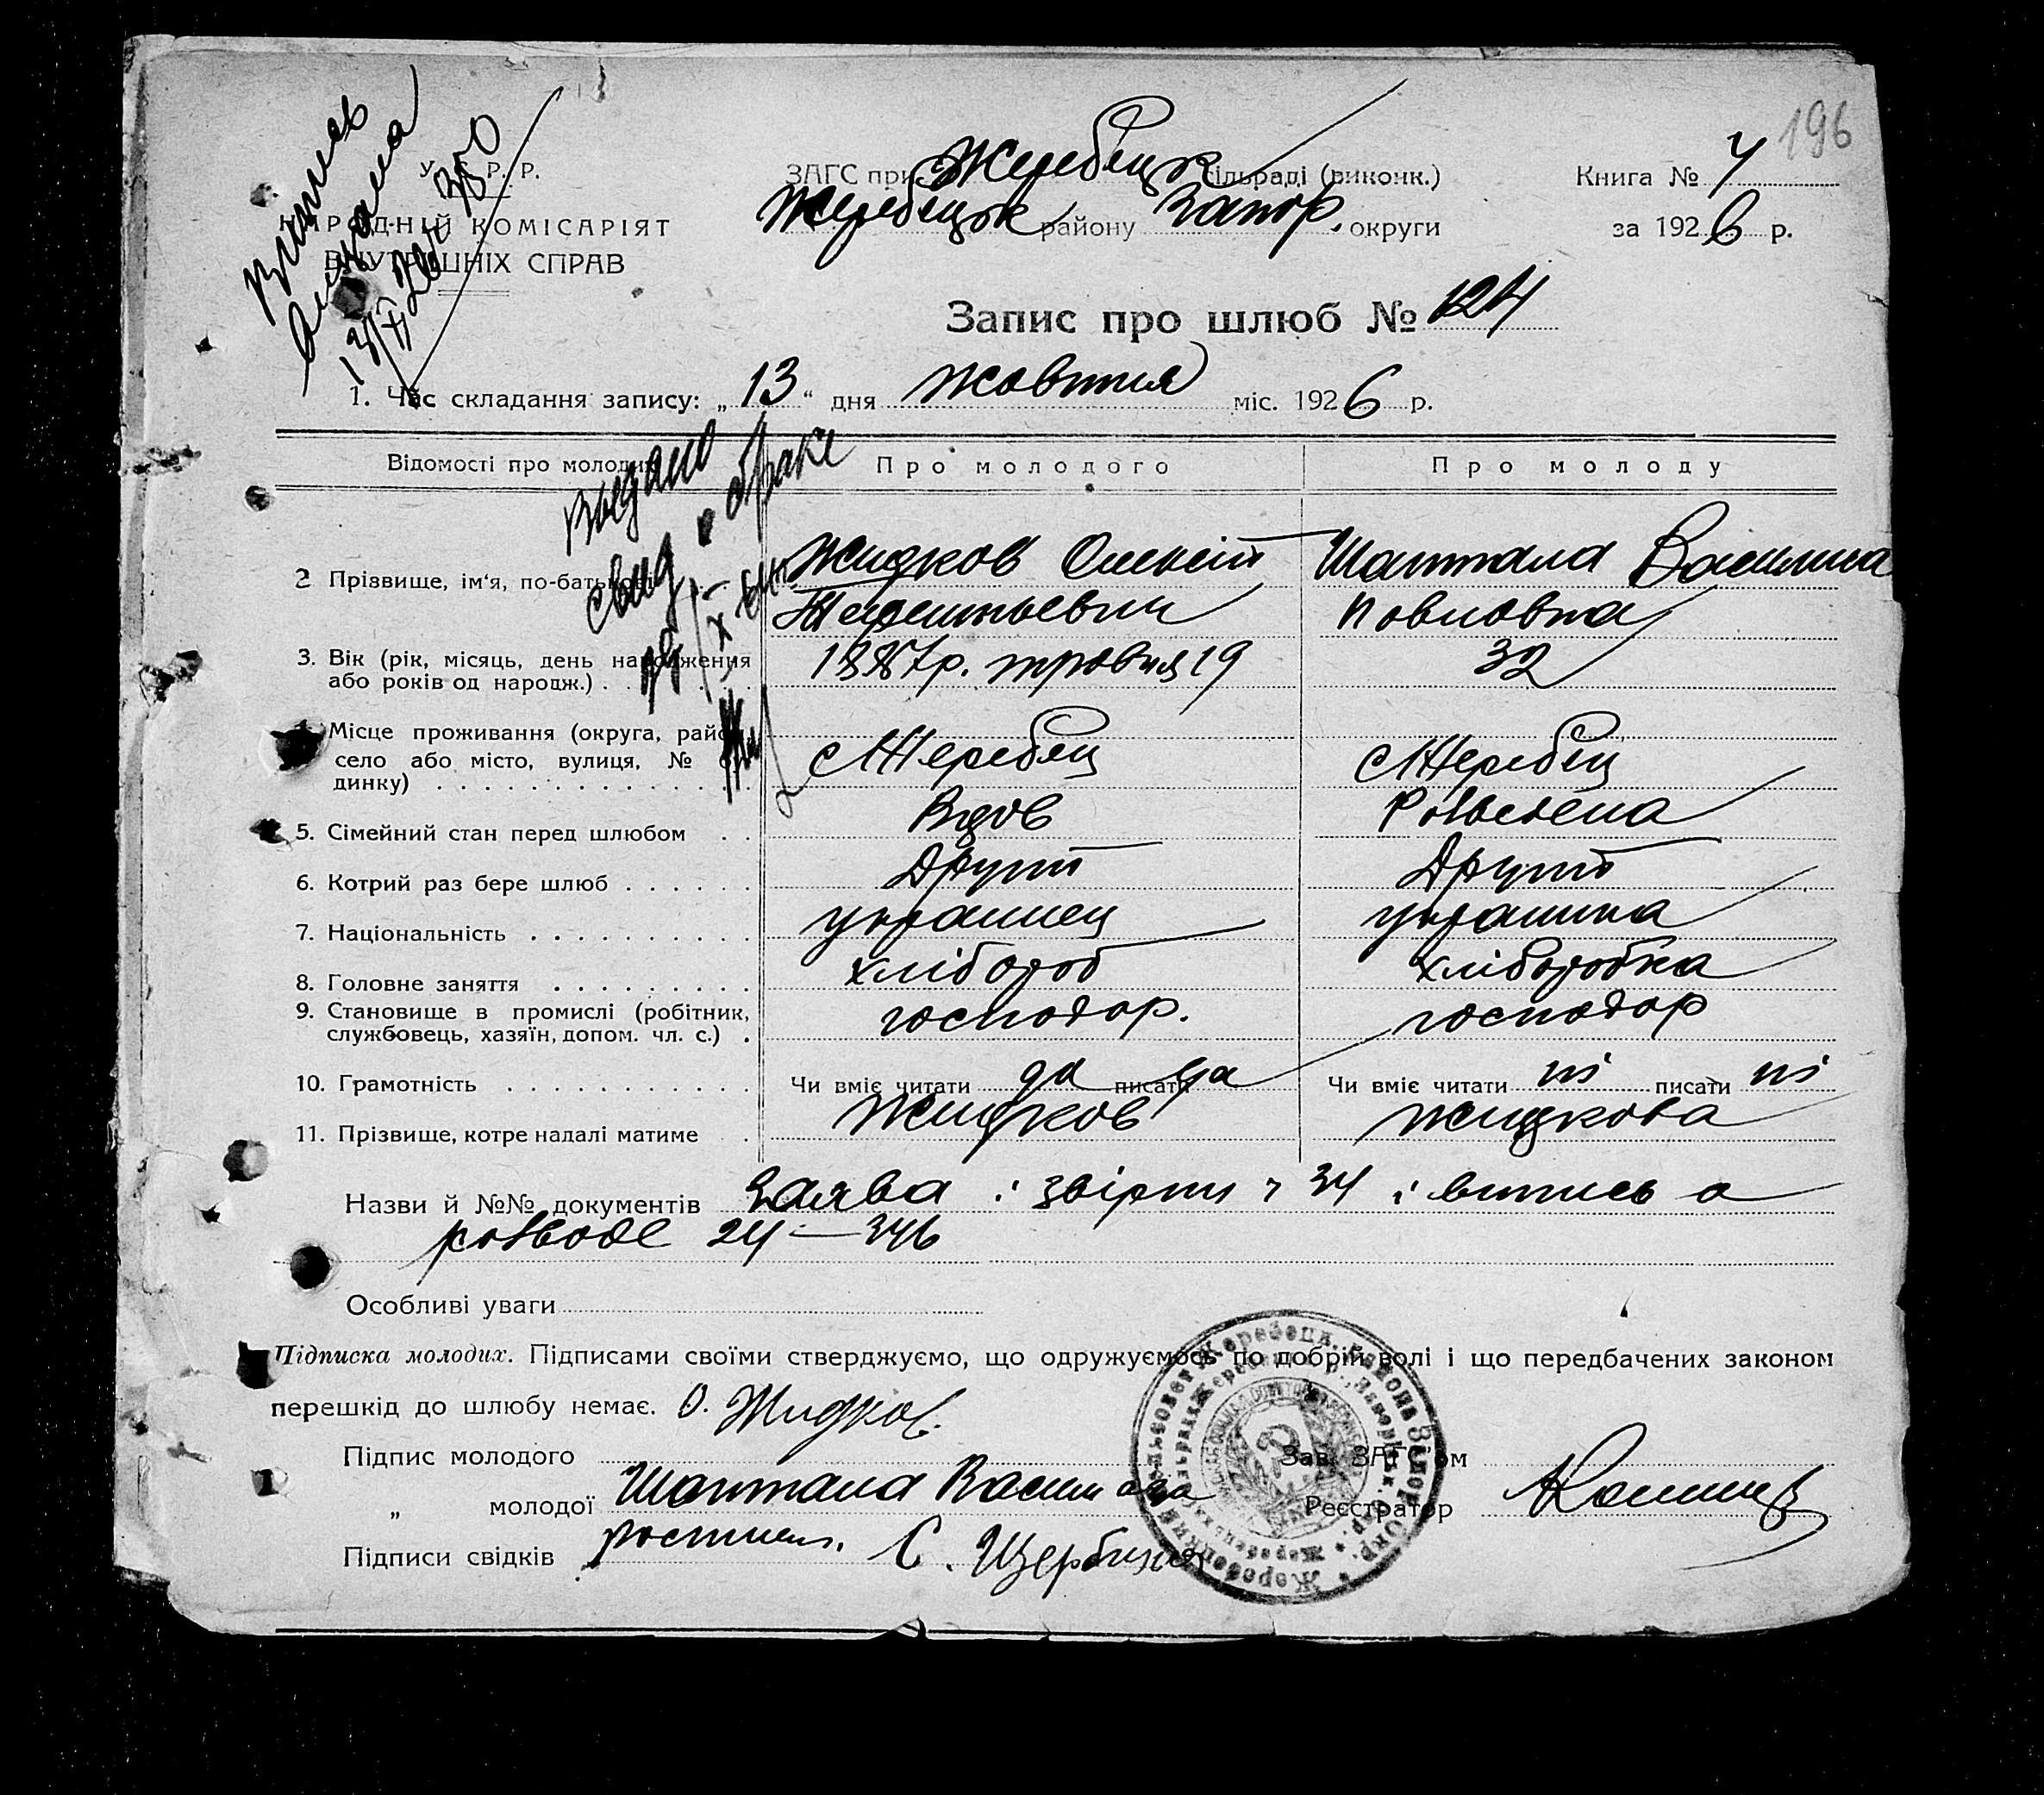 196
У. С. Р. Р.
НАРОДНІЙ КОМІСАРІЯТ
ВНУТРІШНІХ СПРАВ
Витпись
13/X 26 350
ЗАГС при Жеребецьк сільраді (виконк.)
Жеребецьк району Запор. округи
Книга № 4
за 1926 р.
Запис про шлюб № 124
1. Час складання запису: „13" дня жовтня міс. 1926 р.
Відомості про молодих
Про молодого
Про молоду
Выдано
свид о браке
2 Прізвище, ім'я, по-батькові
Жидков Олексій
Терентьевич
Шаптала Василина
Повловна
3. Вік (рік, місяць, день народження
або років од народж.)
1887р. травня 19
32
4. Місце проживання (округа, район,
село або місто, вулиця, № будинку)
с Жеребец
с Жеребец
5. Сімейний стан перед шлюбом
Вдов
Розведена
6. Котрий раз бере шлюб
Другий
Другий
7. Національність
украинец
украинка
8. Головне заняття
хлібороб
хліборобка
9. Становище в промислі (робітник,
службовець, хазяїн, допом. чл. с.)
господар.
господар
10. Грамотність
Чи вміє читати да писати да
Чи вміє читати ні писати ні
11. Прізвище, котре надалі матиме
Жидков
Жидкова
Назви й №№ документів Заява і звірки 34 і витпись о
розводе 24 — 346
Особливі уваги
Підписка молодих. Підписами своїми стверджуємо, що одружуємось по добрій волі і що передбачених законом
перешкід до шлюбу немає. О. Жидков.
Підпис молодого
„ молодої Шаптала Василина
Підписи свідків С. Щербина
Зав. ЗАГС'ом
Реєстратор